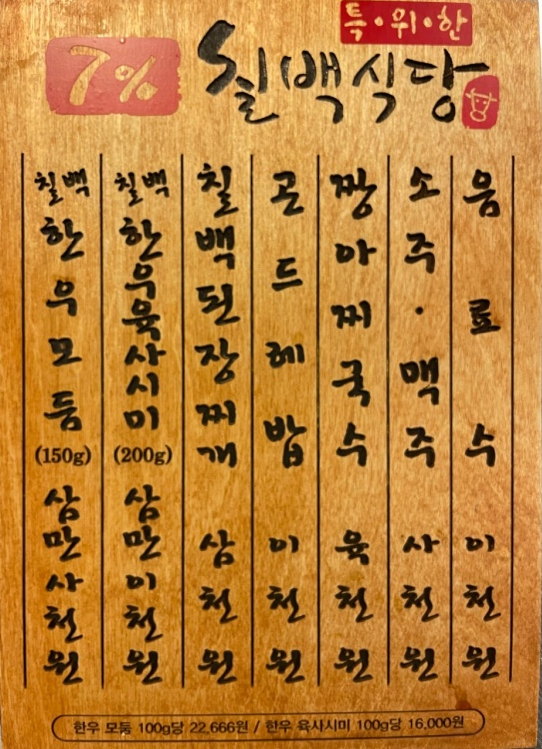 특·위·한
7% 칠백식당
칠백 한우모둠 (150g) 삼만사천원
칠백 한우육사시미 (200g) 삼만이천원
칠백된장찌개 삼천원
곤드레밥 이천원
짱아찌국수 육천원
소주·맥주 사천원
음료수 이천원
한우 모둠 100g당 22,666원 / 한우 육사시미 100g당 16,000원